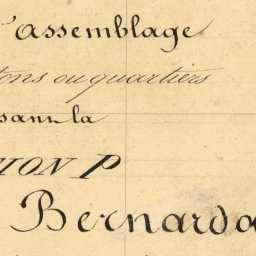 d'assemblage
tons ou quartiers
sans la
ION P
Bernarda